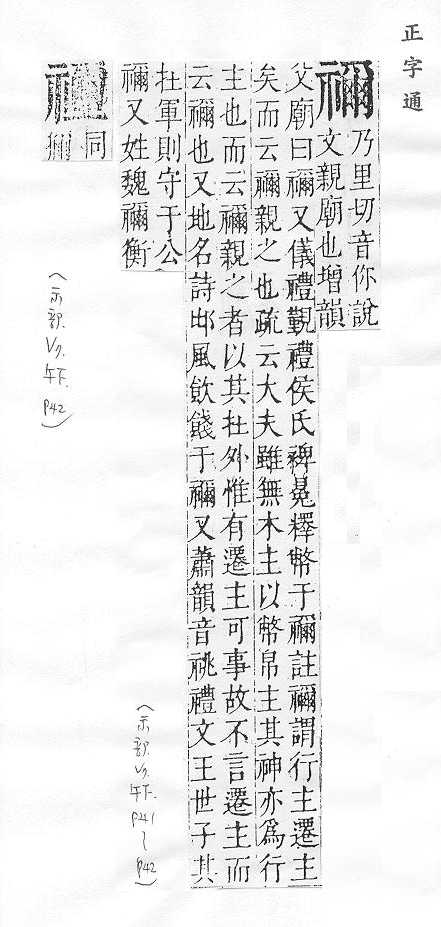 正字通
禰
乃里切音你說
文親廟也增韻
父廟曰禰又儀禮覲禮侯氏裨冕釋幣于禰註禰謂行主遷主
矣而云禰親之也疏云大夫雖無木主以幣帛主其神亦爲行
主也而云禰親之者以其在外惟有遷主可事故不言遷主而
云禰也又地名詩邶風飲餞于禰又蕭韻音祧禮文王世子其
在軍則守于公
禰又姓魏禰衡
同
(示部. V7. 午下. P41~P42)
(示部. V7. 午下. P42)